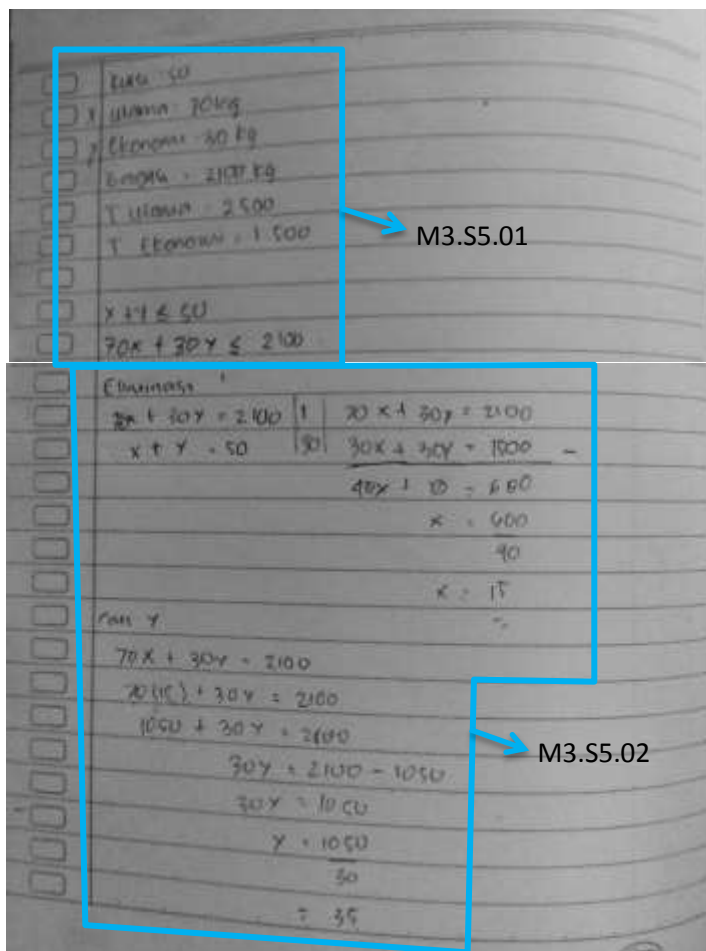 Kursi = 50
x Utama = 70 kg
y Ekonomi = 30 kg
Bagasi = 2100 kg
T Utama = 2500
T Ekonomi = 1.500
M3.S5.01
x + y ≤ 50
70x + 30y ≤ 2100
Eliminasi
70x + 30y = 2100 | 1 | 70x + 30y = 2100
x + y = 50 | 30 | 30x + 30y = 1500 -
40x + 0 = 600
x = 600
40
x = 15
Cari y
70x + 30y = 2100
70(15) + 30y = 2100
1050 + 30y = 2100
M3.S5.02
30y = 2100 - 1050
30y = 1050
y = 1050
30
= 35